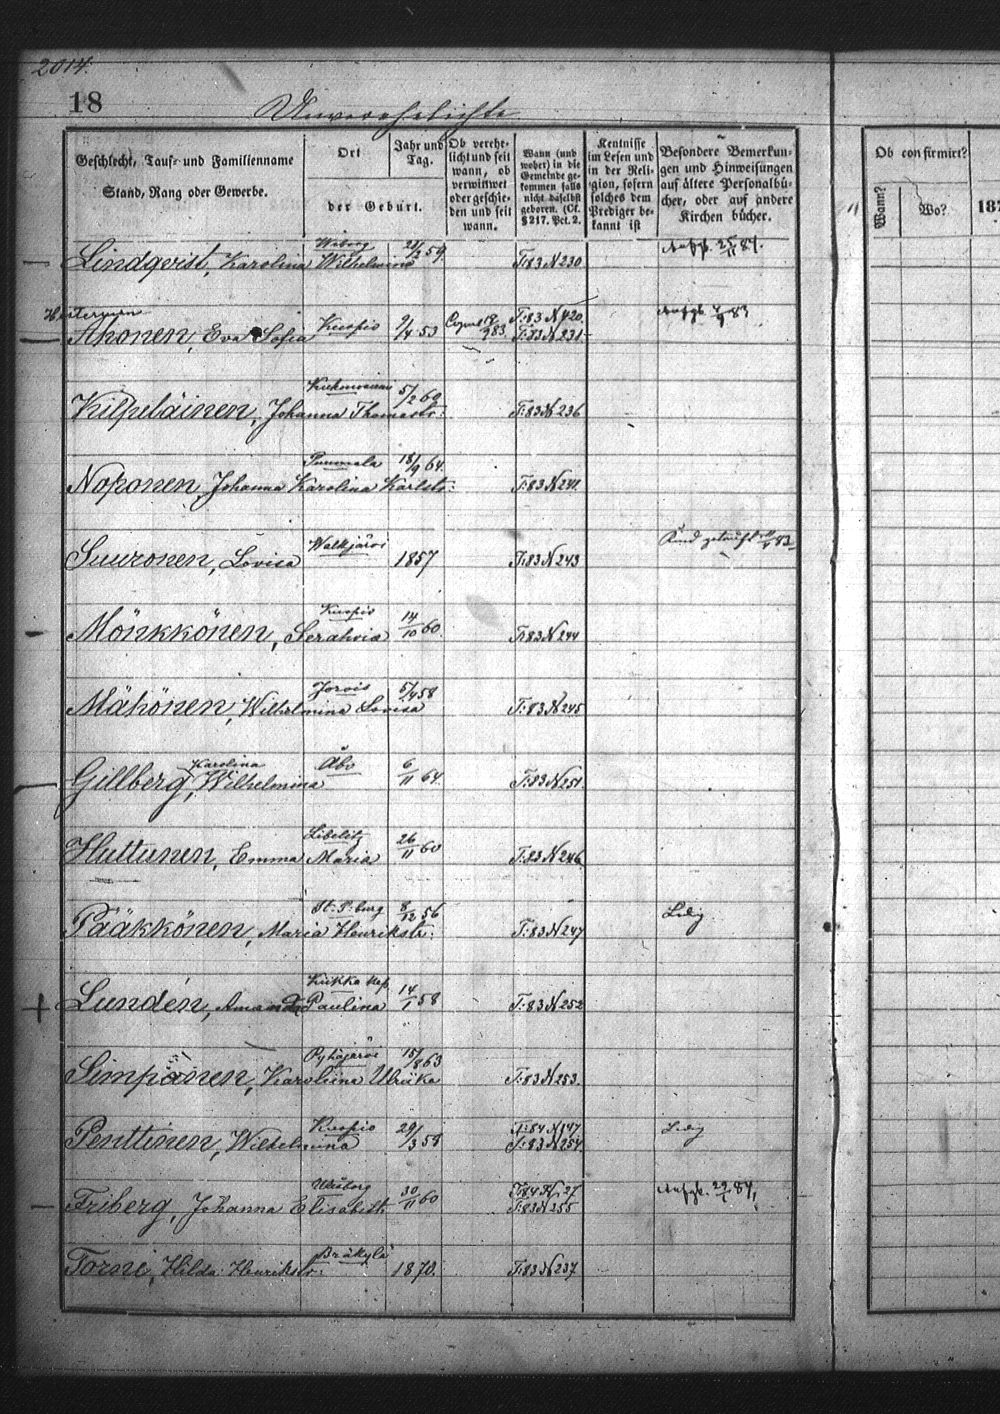 2014.
18
Unverehelichte
Geschlecht, Tauf- und Familienname
Stand, Rang oder Gewerbe.
Ort
der Geburt.
Jahr und Tag.
Ob verehe-
licht und seit
wann, ob
verwitwet
oder geschie-
den und seit
wann.
Wann (und
woher) in die
Gemeinde ge-
kommen falls
nicht daselbst
geboren. (Cf.
§ 217. Pct. 2.
Kentnisse
im Lesen und
in der Reli-
gion, sofern
solches dem
Prediger be-
kannt ist
Besondere Bemerkun-
gen und Hinweisungen
auf ältere Personalbü-
cher, oder auf andere
Kirchen bücher.
Ob confirmirt?
Wann?
Wo?
187
Wiborg
Lindqvist, Karolina Wilhelmina 59 T:83 N 230 Aufgb. 25/11 84.
Ahonen, Eva Sofia Kuopio 9/4 53 Copul 19/9 83 T:83 N 420 T:83 N 231 Aufgb. 83
Kilpeläinen, Johanna Thomastr: 5/2 60 T:83 N 236
Pummala 18/9 64.
Noponen, Johanna Karolina Karlstr: T:83 N 241
Walkjärvi
Suuronen, Lovisa 1857 T:83 N 243 Kind getauft 83
Kuopio
Mönkkönen, Serahvia 14/10 60 T:83 N 244
Jorois 5/4 58
Mähönen, Wilhelmina Lovisa T:83 N 245
Karolina Åbo
Gillberg, Wilhelmina 6/11 64. T:83 N 251
Libelitz
Huttunen, Emma Maria 26/11 60 T:83 N 246
St. P.burg 8/12 56
Pääkkönen, Maria Henrikstr: T:83 N 247 Ledig
Lundén, Amanda Paulina 14/1 58 T:83 N 252
Pyhäjärvi 15/8 63
Simpanen, Karoliina Ulriika T:83 N 253.
Kuopio T:84 N 147
Penttinen, Wilhelmina 29/3 58 T:83 N 254 Ledig
Wiborg T:84 N 27
Friberg, Johanna Elisabeth 30/11 60 T:83 N 255 Aufgb. 29/1 84,
Bräkylä
Torni, Hilda Henrikstr: 1870. T:83 N 237